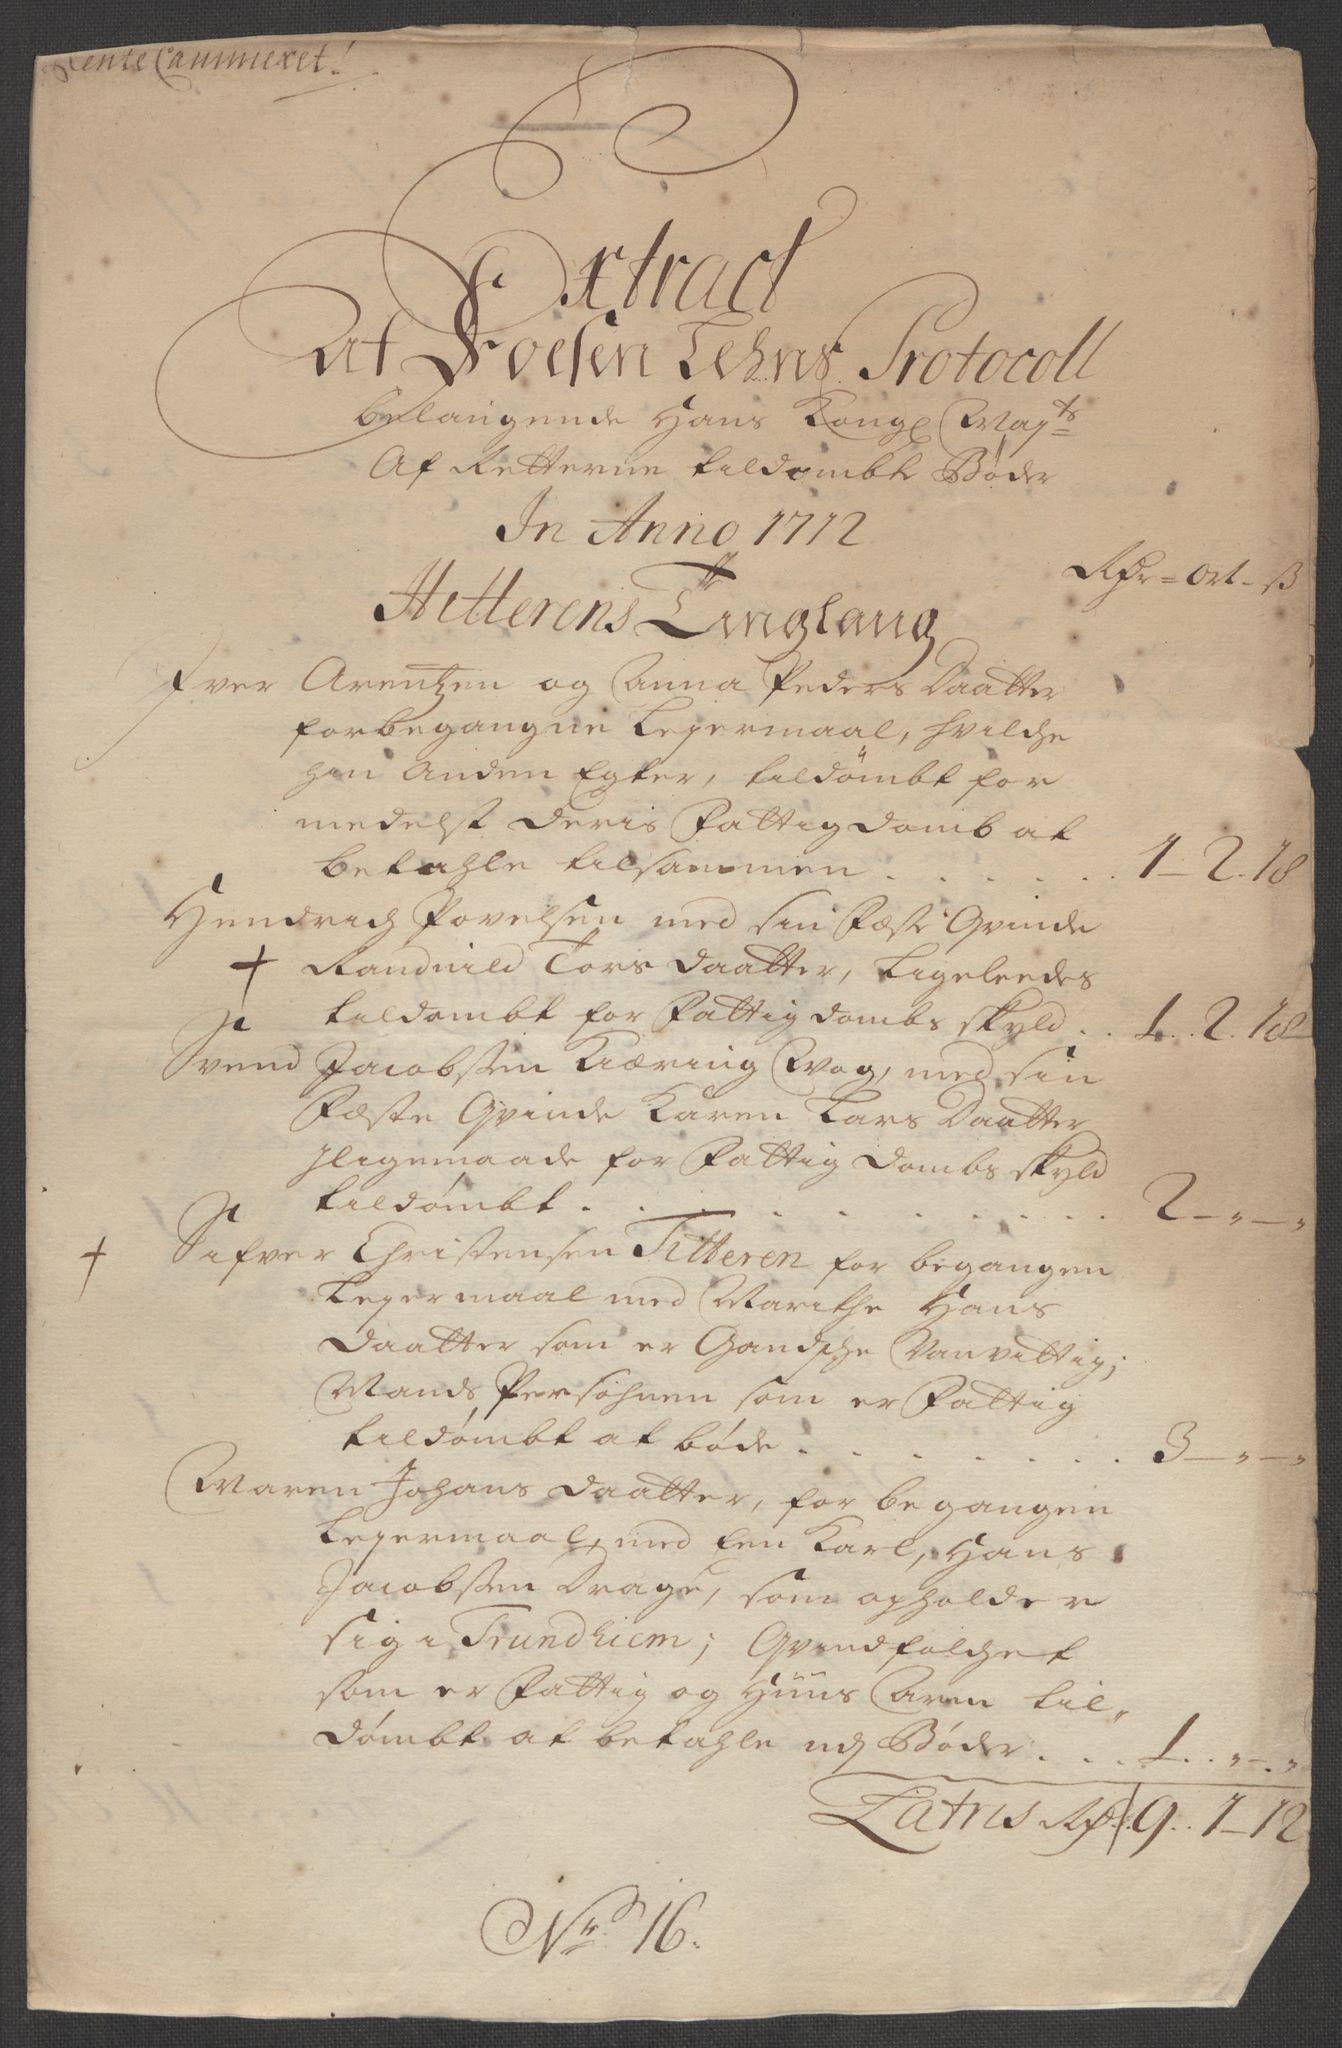 Rente Cammeret!
Extract
Af Foesen Lehns Protocoll
belangende Hans Kongl Mayts
Af Retterne tildømbte Bøder
In Anno 1712
Rdr - Ort - ß
Hitterens Tinglaug
Iver Arentzen og Anna Peders Daatter
forbegangne Leyermaal, hvilche
hin Anden Egter, tildömbt for
medelst deris Fattigdomb at
betahle tilsammen . . . . . . 1 - 2. 18
Hendrich Povelsen med sin Fæste Qvinde
+ Randnild Tors daatter, ligeleedes
tildömbt for Fattigdombs skyld . . 1. . 2. 18
Svend Jacobsen Kiæring Wog, med sin
Fæste Qvinde Karen Lars Daatter
Jligemaade for Fattig Dombs skyld
tildømbt . . . . . . . . . . 2 - " - "
+ Sifver Christensen Titteren for begangen
Leyermaal med Marithe Hans
daatter som er Gandsche Vanvittig;
Mands Persohnen som er Fattig
tildømbt at bøde . . . . . . . . 3 - " - "
Maren Johans daatter, for begangen
Leyermaal, med een Karl, Hans
Jacobsen Drage, som opholder
sig i Trundhiem; Qvindfolchet
som er Fattig og Huus Arm til,
dømbt at betahle udj Bøder . . . 1 . . " - . "
Latris Rdr. 9. . 1 - 12
No 16.